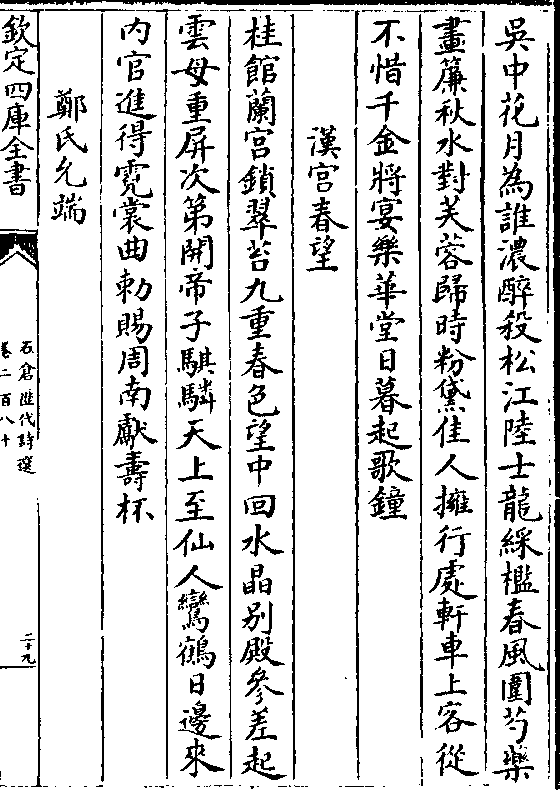 吳中花月為誰濃醉殺松江陸士龍綵檻春風圍芍藥
畫簾秋水對芙蓉歸時粉黛佳人擁行處軒車上客從
不惜千金將宴樂華堂日暮起歌鐘
漢宮春望
桂館蘭宮鎖翠苔九重春色望中回水晶别殿參差起
雲母重屏次第開帝子騏驎天上至仙人鸞鶴日邊來
内官進得霓裳曲勅賜周南獻壽杯
鄭氏允端
欽定四庫全書
石倉歴代詩選
卷二百八十
二十九